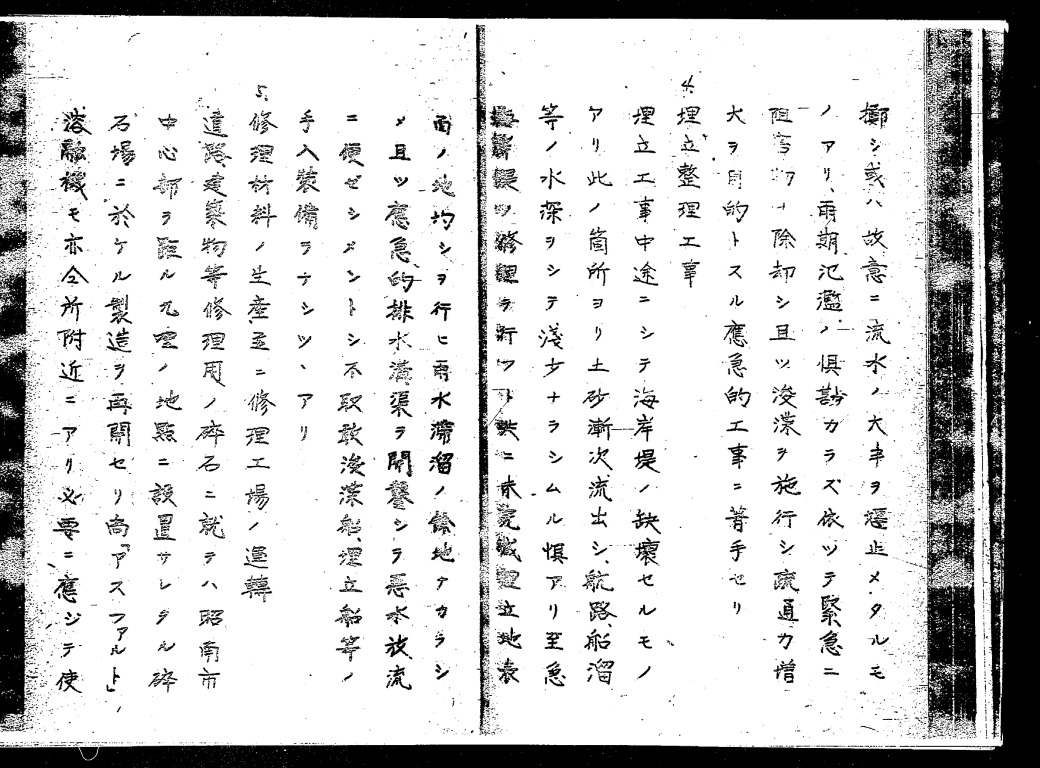 擲シ或ハ故意ニ流水ノ大半ヲ堰止メタルモ
ノアリ、雨期氾濫ノ惧尠カラズ依ツテ緊急ニ
阻害物ヲ除却シ且ツ浚渫ヲ施行シ疏通力増
大ヲ目的トスル應急的工事ニ着手セリ
4. 埋立整理工事
埋立工事中途ニシテ海岸堤ノ缺壞セルモノ
アリ此ノ箇所ヨリ土砂漸次流出シ、航路、船溜
等ノ水深ヲシテ淺少ナラシムル惧アリ至急
修理ヲ行フト共ニ未完成埋立地表
面ノ地均シヲ行ヒ雨水滯溜ノ餘地ナカラシ
メ且ツ應急的排水溝渠ヲ開鑿シテ惡水放流
ニ便ゼシメントシ不取敢浚渫船、埋立船等ノ
手入裝備ヲナシツヽアリ
5. 修理材料ノ生産並ニ修理工場ノ運轉
道路建築物等修理用ノ碎石ニ就テハ昭南市
中心部ヲ距ル九粁ノ地點ニ設置サレタル碎
石場ニ於ケル製造ヲ再開セリ尚「アスファルト」
溶融機モ亦仝所附近ニアリ必要ニ應ジテ使